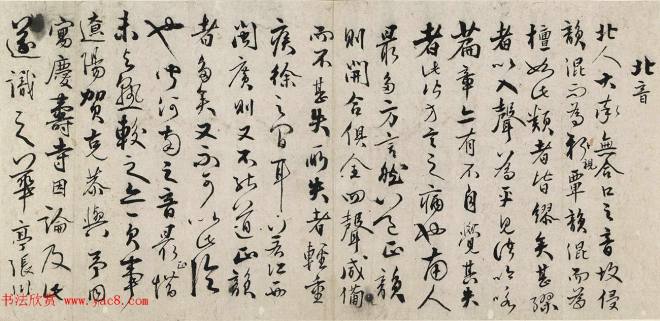 北音
北人大率無合口之音故侵
韻混而為親覃韻混而為
檀如此類者皆謬矣甚謬
者以入聲為平見諸吟咏
篇章亦有不自覺其失
者此方言之病也南人
最多方言然以之正韻
則開合俱全四聲咸備
而不甚失所失者輕重
疾徐之間耳江西
閩廣則又不能道正韻
者多矣又不可以此論
也河南之音最正惜
未與較之亦一事
遼陽賀克恭與予同
寓慶壽寺因論及此
遂識之華亭張
书法欣赏 www.yac8.com